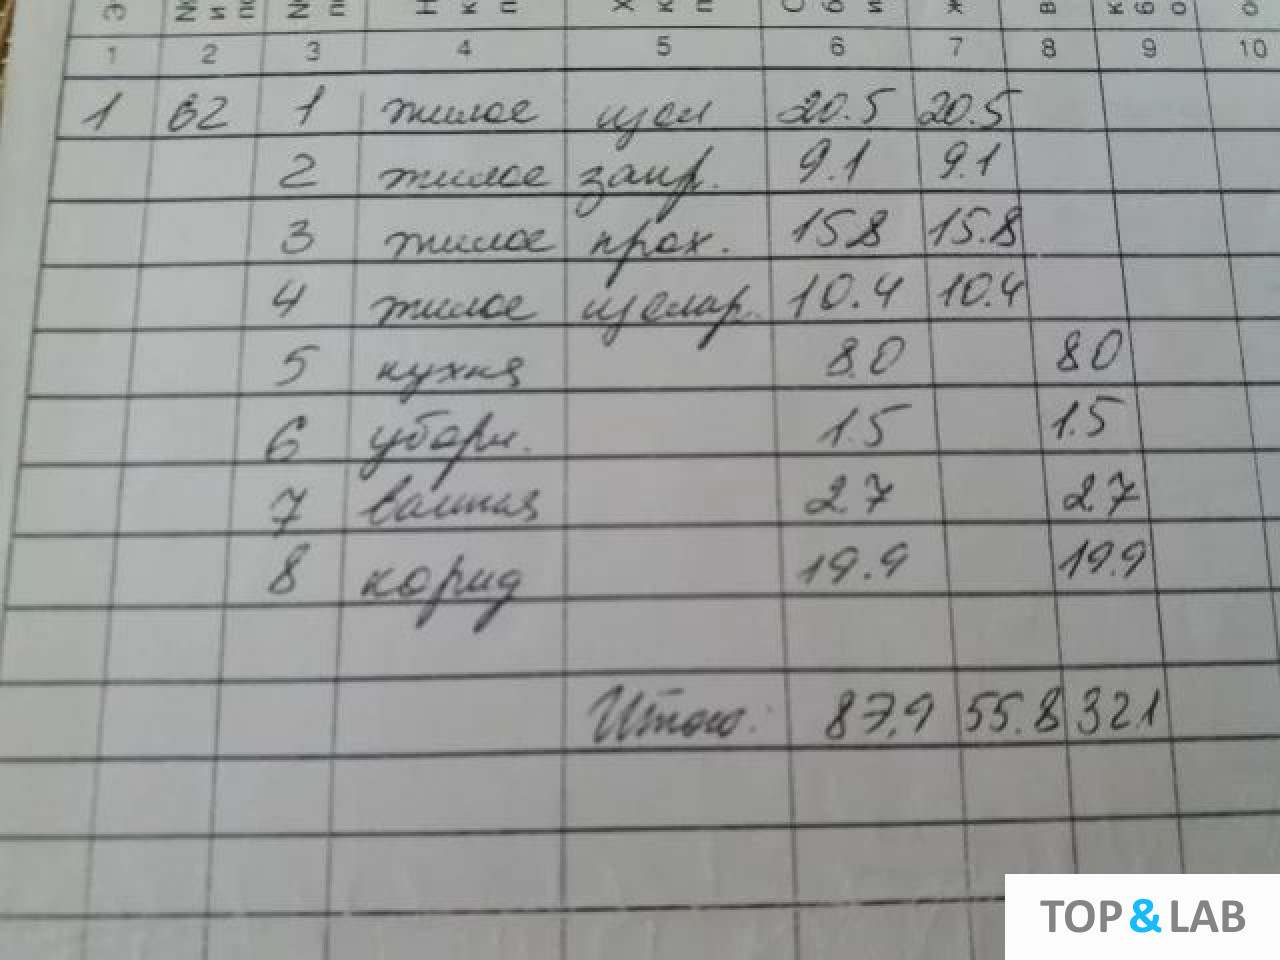 1 2 3 4 5 6 7 8 9 10
1 62 1 жилое щел 20.5 20.5
2 жилое запр. 9.1 9.1
3 жилое прох. 15.8 15.8
4 жилое 10.4 10.4
5 кухня 8.0 8.0
6 уборн. 1.5 1.5
7 ванная 2.7 2.7
8 корид 19.9 19.9
Итого: 87.9 55.8 32.1
TOP&LAB